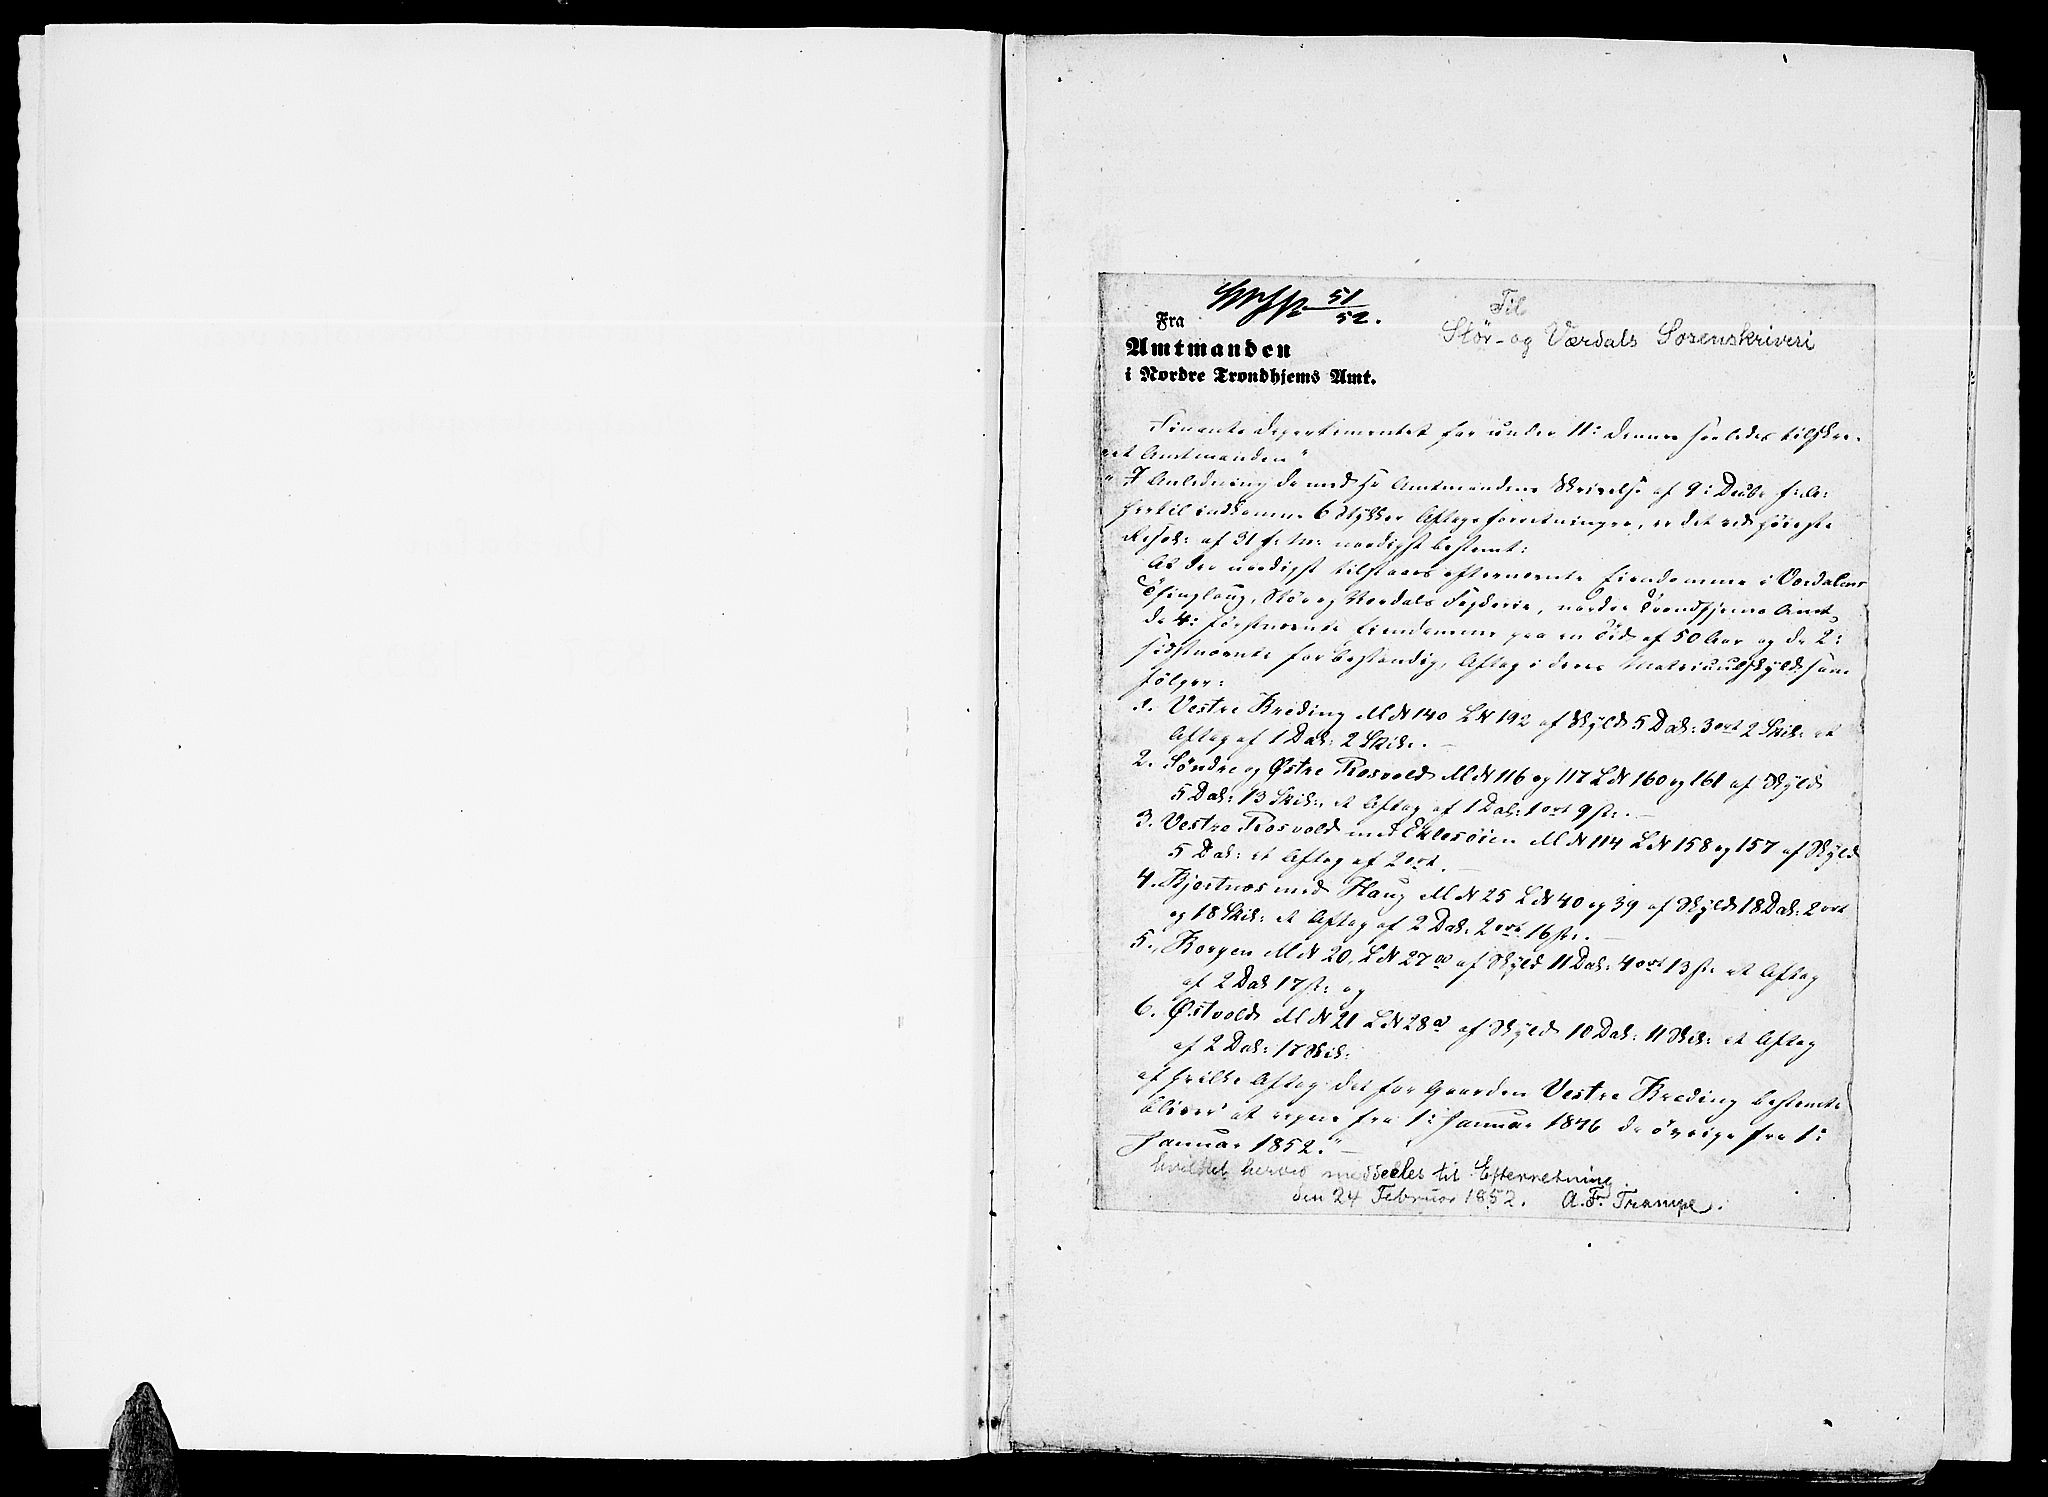 51/52.
Fra
Til
Stør- og Værdals Sorenskriveri
Amtmanden
i Nordre Trondhjems Amt.
Finants Departementet har under 11: dennes saaledes tilskre-
vet Amtmanden"
"I Anledning de med Hr Amtmandens Skrivelse af 9: Decbr f: A:
hertil indkomne 6 Stykker Aftagsforretninger, er det ved höieste
Resol: af 31 f: M: naadigst bestemt:
At der naadigst tilstaaes efternævnte Eiendomme i Værdalens
Thinglaug, Stör og Værdals Fogderie, nordre Trondhjems Amt,
de 4: förstnævnte Eiendomme paa en Tid af 50 Aar og de 2:
sidstnævnte for bestandig, Aftag i deres Matriculskyld som
fölger:
1. Vestre Kreding M N 140 L N 192 af Skyld 5 Dal: 3 ort 2 Skil: et
Aftag af 1 Dal: 2 Skil. —
2. Söndre og Østre Rosvold M N 116 og 117 L N 160 og 161 af Skyld
5 Dal: 13 Skil: et Aftag af 1 Dal: 1 ort 9 sk: —
3. Vestre Rosvold med Eklesöien M N 114 L N 158 og 157 af Skyld
5 Dal: et Aftag af 2 ort. —
4. Bjertnæs med Haug M N 25 L N 40 og 39 af Skyld 18 Dal: 2 ort
og 18 Skil: et Aftag af 2 Dal: 2 ort 16 sk: —
5. Borgen M N 20, L N 27 a af Skyld 11 Dal: 4 ort 13 sk: et Aftag
af 2 Dal 17 sk: og
6. Østvold M N 21 L N 28 a af Skyld 10 Dal: 11 Skil: et Aftag
af 2 Dal: 17 Skil:
af hvilke Aftag det for Gaarden Vestre Kreding bestemte
bliver at regne fra 1: Januar 1846 de övrige fra 1:
Januar 1852." —
hvilket herved meddeeles til Efterretning.
den 24 Februar 1852. A. Fr. Trampe.